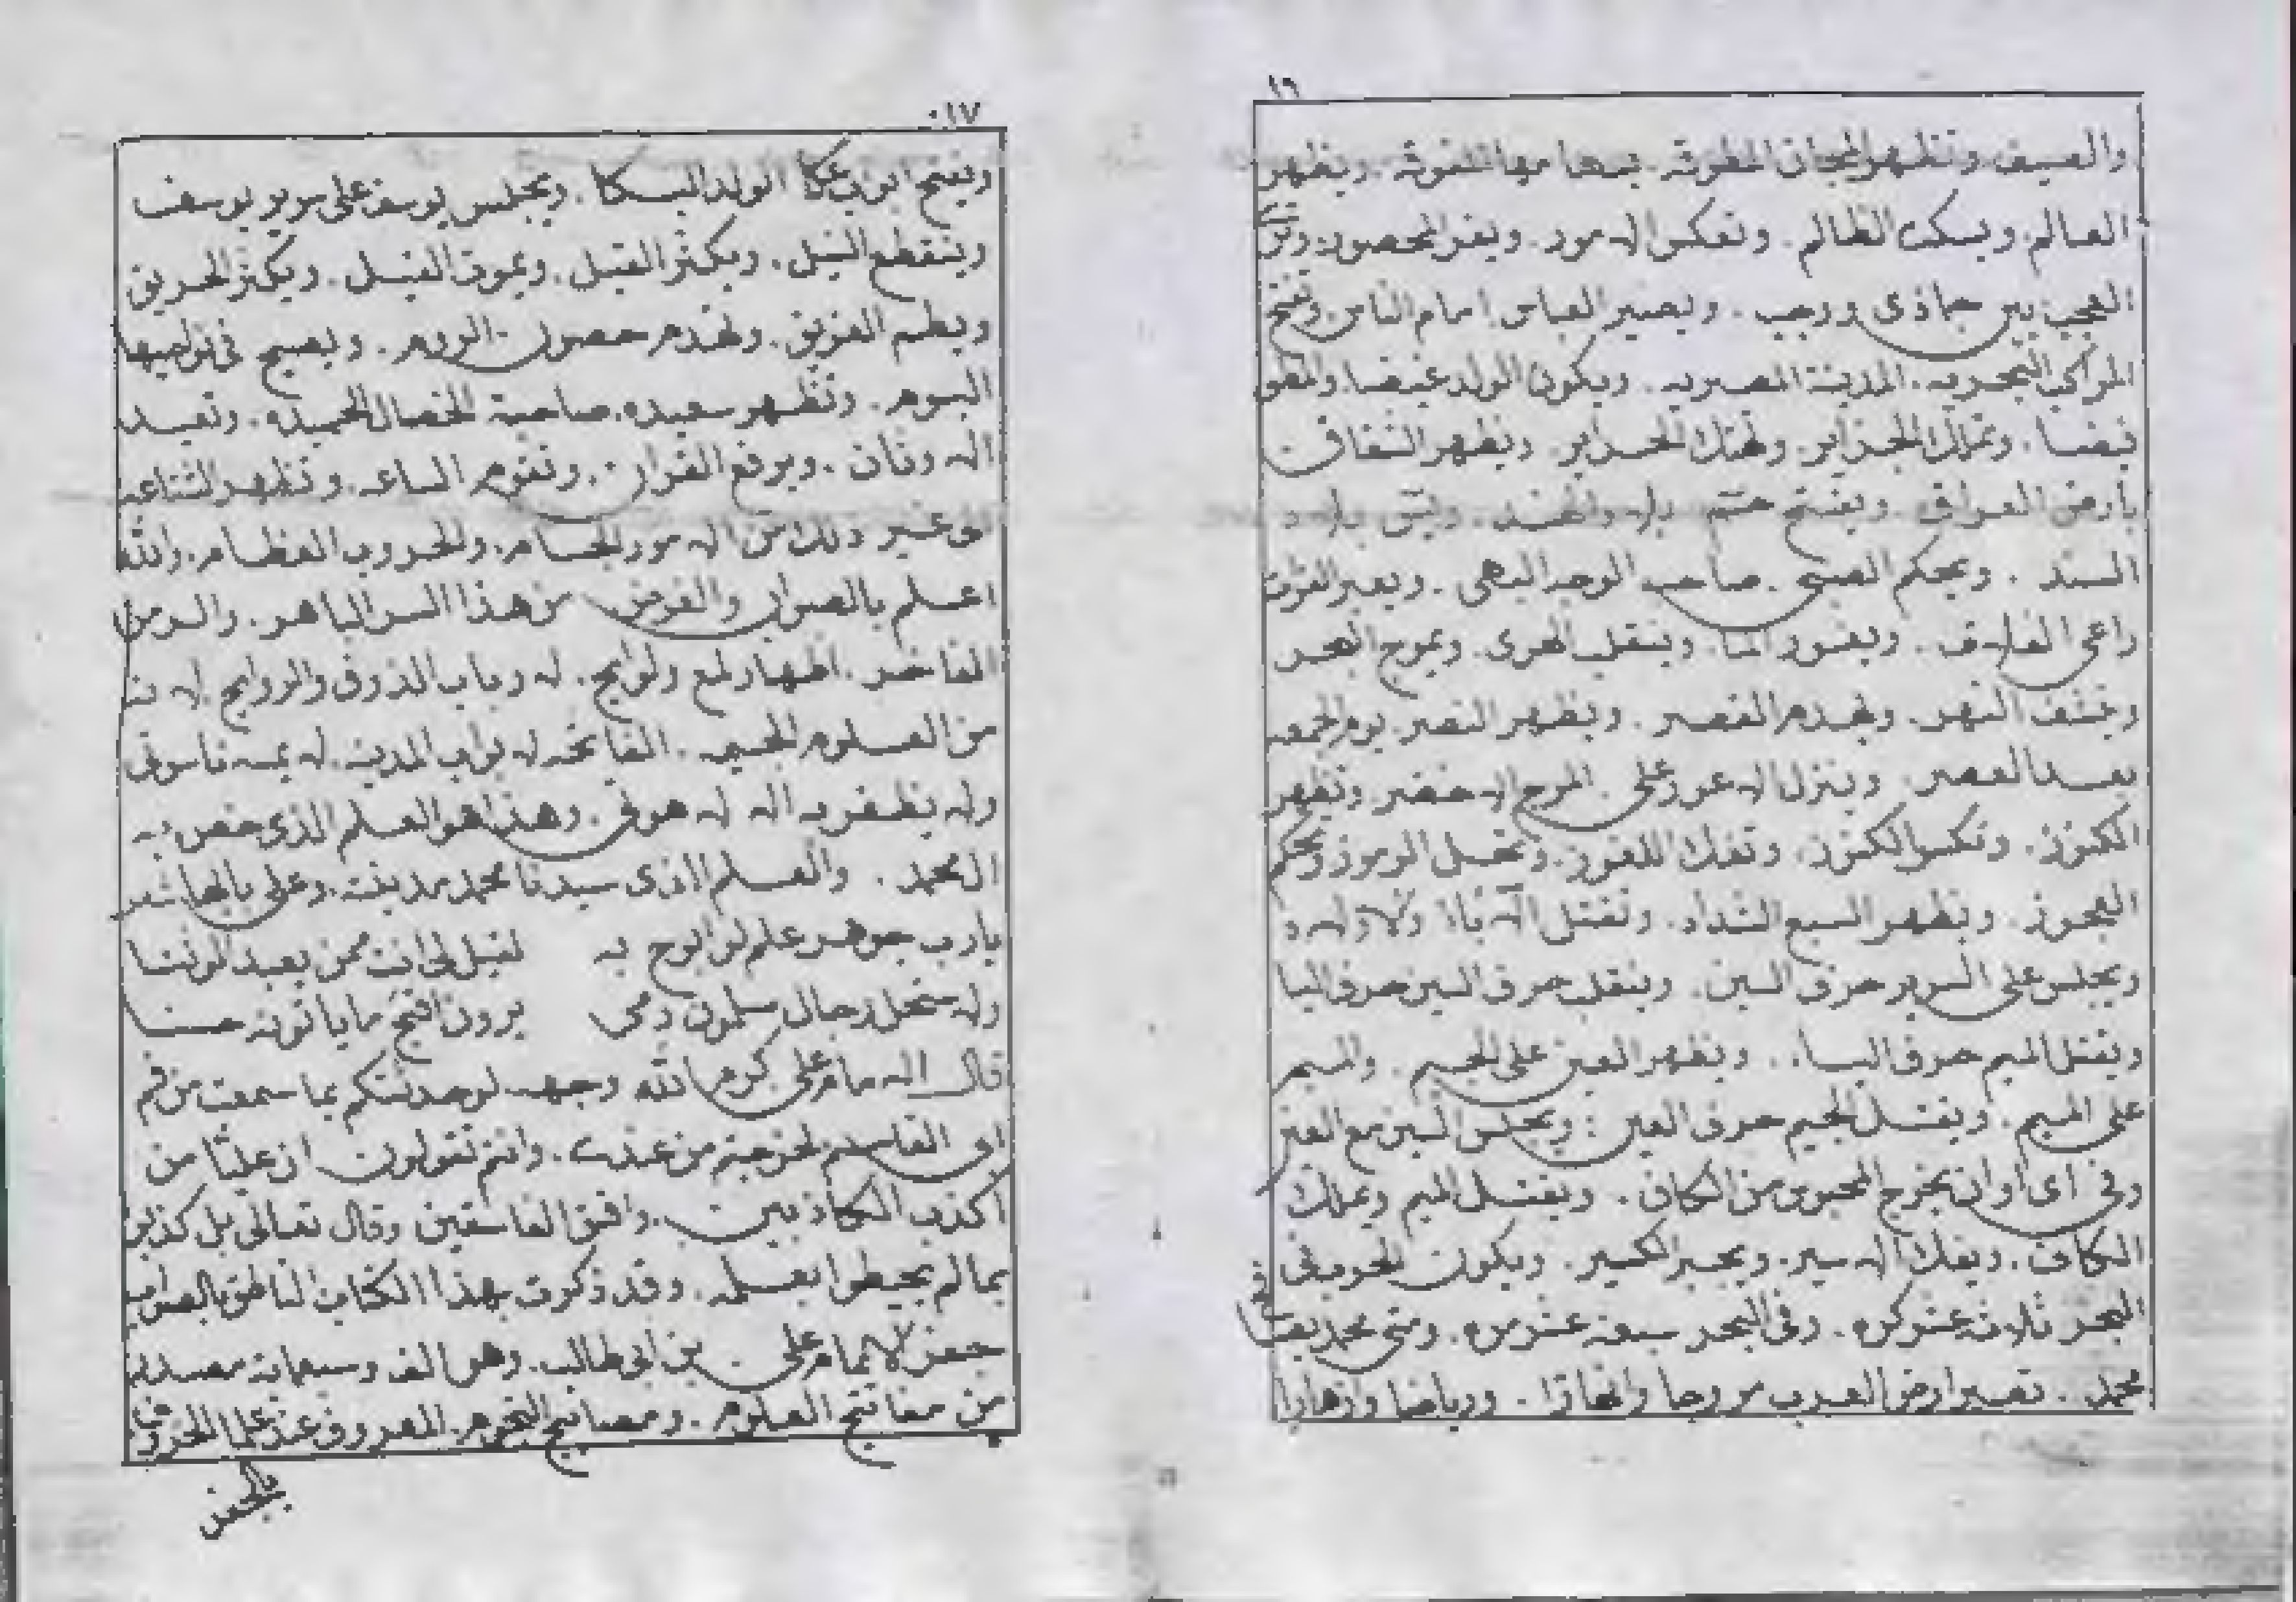 ١٦
والصيف. وتظهر المجان المطرقة. ويظهر
العالم. ويسكت الظالم. وتعكس الامور. ويفر المحصور.
العجب بين جماذى ورجب. ويصير العباس امام الناس. وتفتح
المراكب البحريه. المدينة المصريه. ويكون الولد غيضا. والمطر
قيضا. وتملك الجزاير. وتهتك الحراير. ويظهر الشقاق
بارض العراق. ويفتح بلاد الهند. بلاد
السند. ويحكم الصبى. صاحب الوجه البهى. ويعبر الفرات
راعى. ويغور الما. وينقلب الهوى. ويموج البحر
وينشف النهر. ويهدم القصر. ويظهر النصر. يوم الجمعه
بعد العصر. وينزل الاعور على المرج الاخضر. وتظهر
الكنوز. وتكسر الكنوز. وتفك اللغوز. وتحل الرموز. وتحكم
العجوز. ويظهر السبع الشداد. وتقتل الآباء والاولاد
ويجلس على السرير حرف السين. وينقلب حرف السين حرف اليا
ويقتل الميم حرف اليا. ويظهر العين على الجيم. والميم
على الميم. ويقتل الجيم حرف العين. ويجلس السين مع العين
وفى اى اوان يخرج المحبوس من الكاف. ويقتل الميم ويملك
الكاف. ويفك الاسير. ويجبر الكسير. ويكون
البحر ثلاثة عشر كره. وفى البحر سبعة عشر مره. ومتى محمد
محمد. تصير ارض العرب مروجا وانهارا. ورياضا وازهارا
١٧
ويفتح ابواب عكا الولد البكا. ويجلس يوسف على سرير يوسف
وينقطع النيل. ويكثر القتيل. ويموت الفيل. ويكثر الحريق
ويطم الغريق. وتهدم حصون الروم. ويصيح فى نواحيها
البوم. وتظهر سعيده. صاحبة الخصال الحميده. وتعبد
الاوثان. ويرفع القرآن. وتقوم الساعه. وتظهر الشناعه
الى غير ذلك من الامور الجسام. والحروب العظام. والله
اعلم بالصواب والغرض من هذا السر الباهر. والرمز
الفاخر. اظهار لمع ولوايح. لارباب الذوق والروايح
من العلوم. الفاتحه لابواب المدينه. لا يمسه ناسوتى
ولا يظفر به الا لاهوتى. وهذا هو العلم الذى خص به
آل محمد. والعلم الذى سيدنا محمد مدينته. وعلى بابها شعر
يارب جوهر علم لو ابوح به لقيل لى انت ممن يعبد الوثنا
ولاستحل رجال مسلمون دمى يرون اقبح ما ياتونه حسنا
قال الامام على كرم الله وجهه لو حدثتكم بما سمعت من فم
ابى القاسم لخرجتم من عندى. وانتم تقولون ان عليا من
اكذب الكاذبين. وافسق الفاسقين وقال تعالى بل كذبوا
بما لم يحيطوا بعلمه. وقد ذكرت بهذا الكتاب الناطق بالصواب
جفر الامام على بن ابى طالب. وهو الف وسبعمائة مصدر
من مفاتيح العلوم. ومصابيح النجوم. المعروف عند علما الحروف
بالجفر